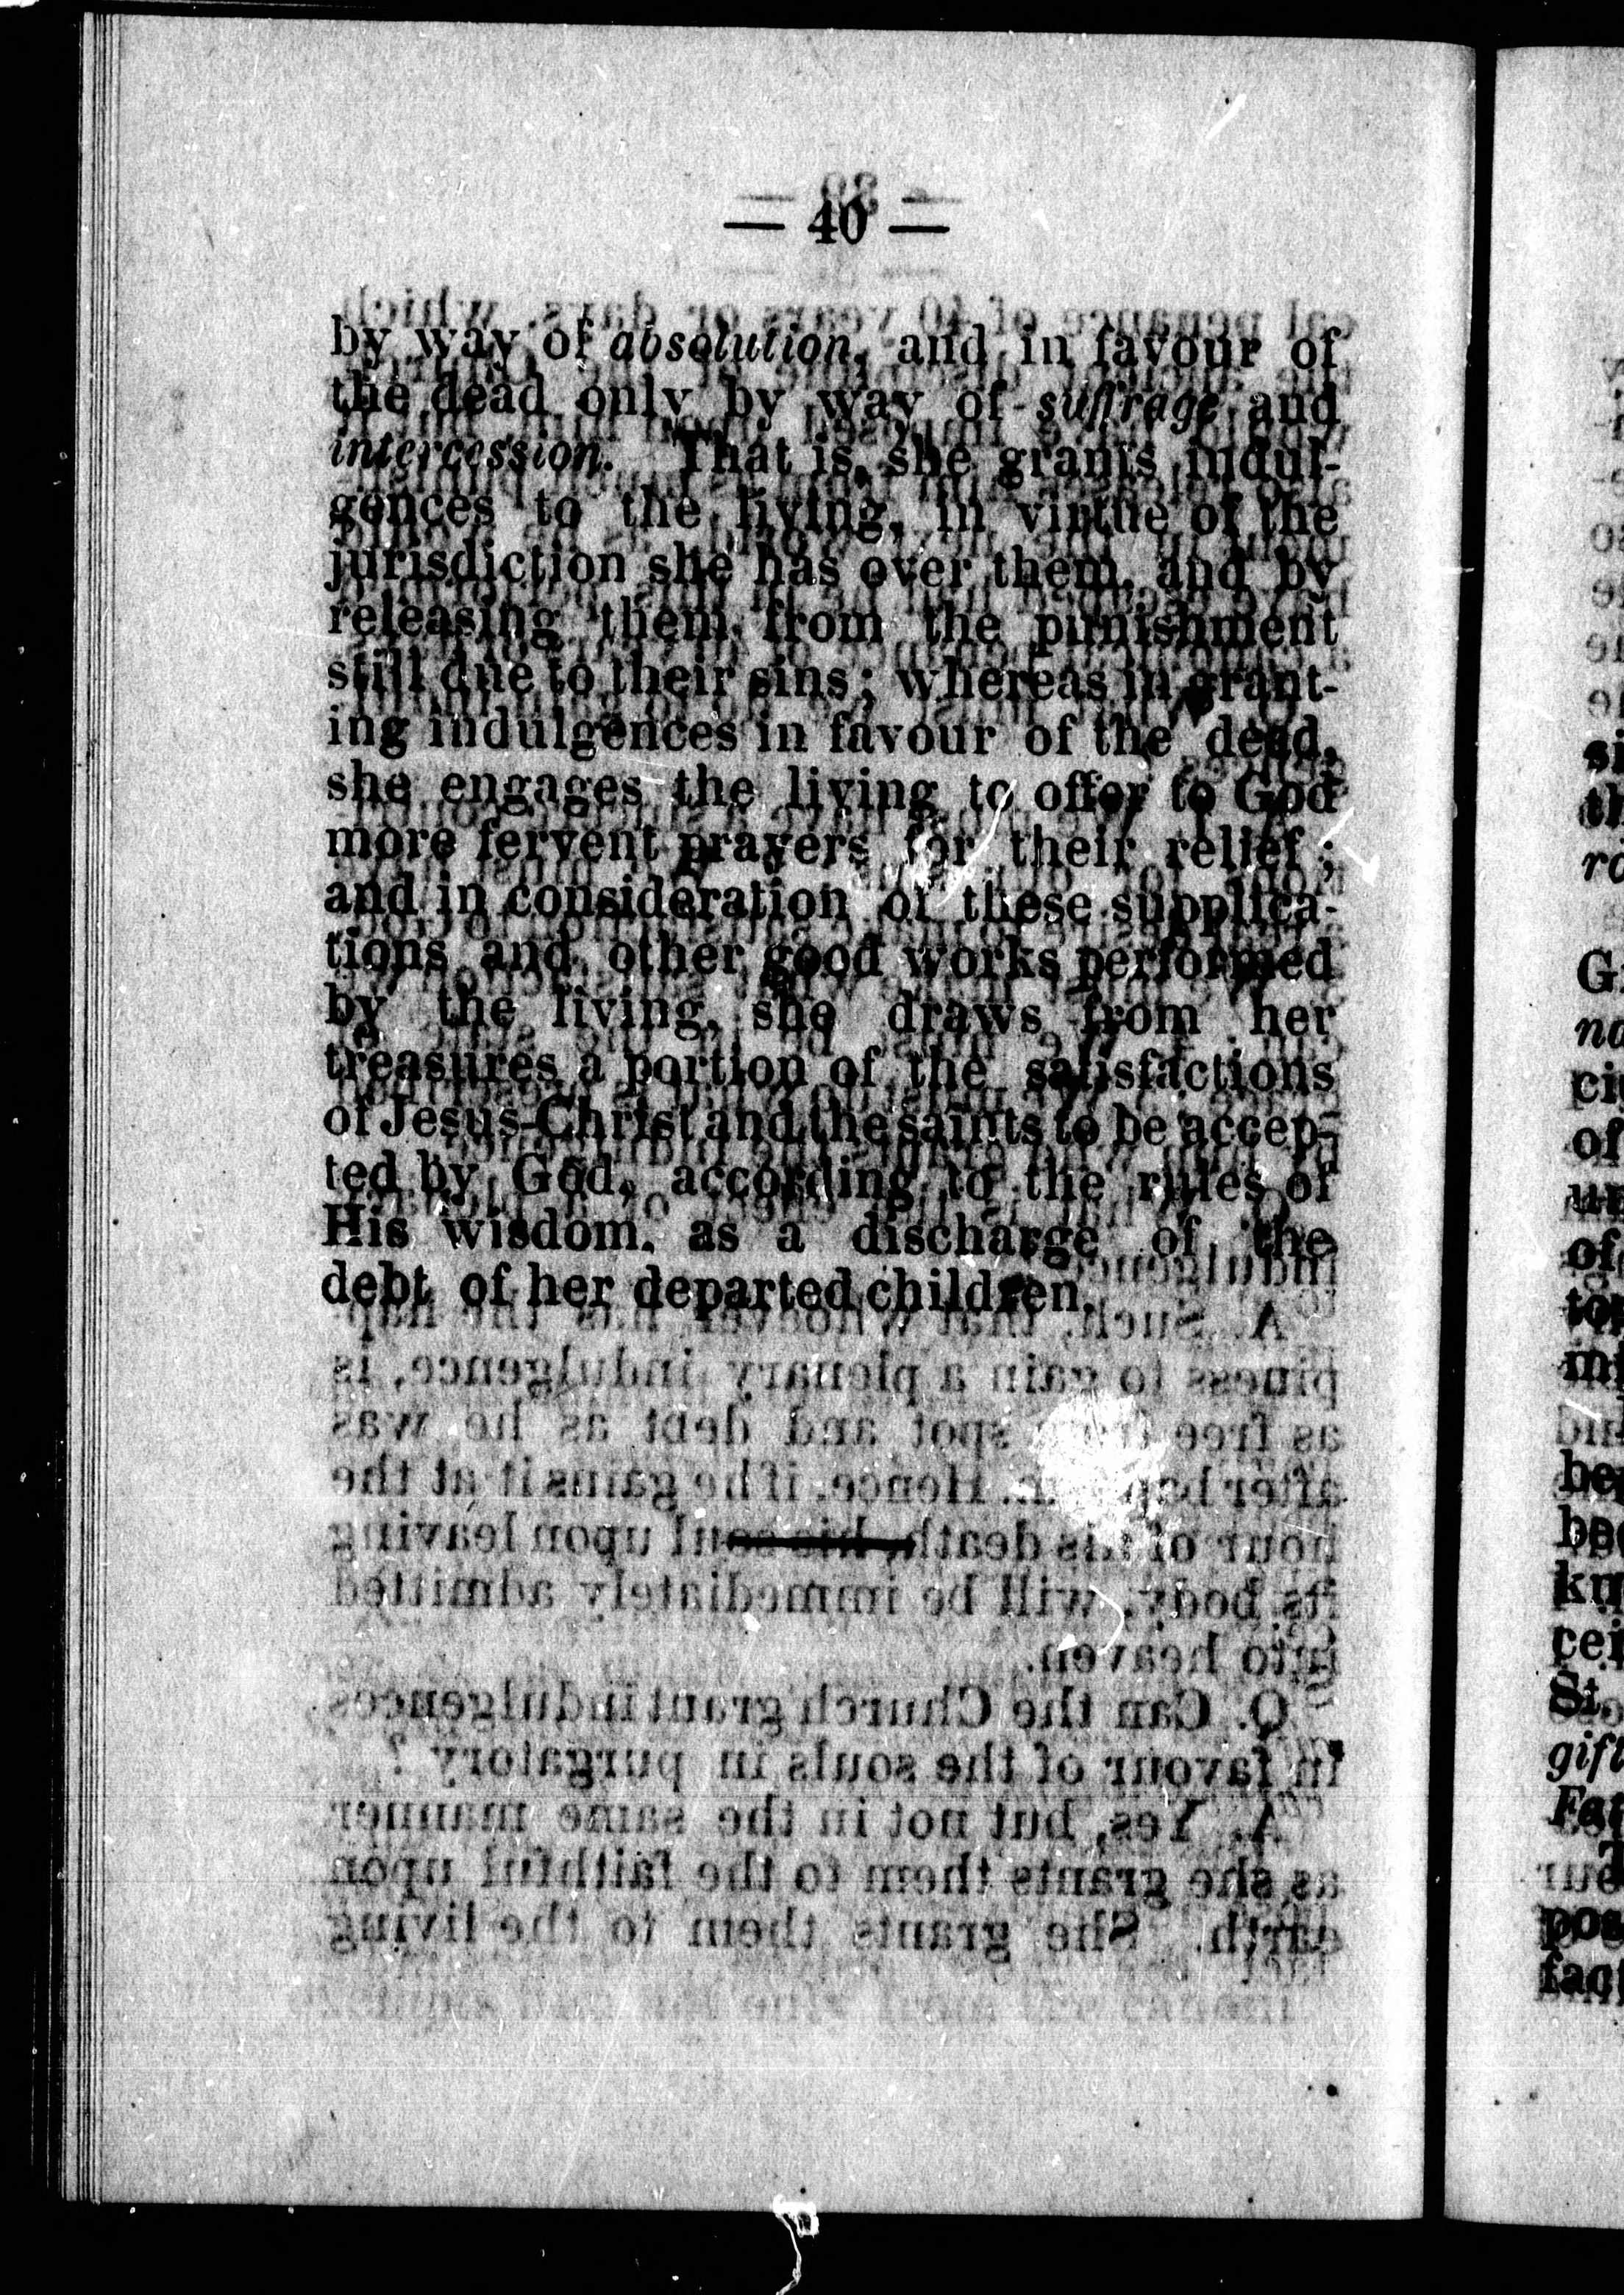 — 40 —
by way of absolution, and in favour of
the dead only by way of suffrage and
intercession. That is, she grants indul-
gences to the living, in virtue of the
jurisdiction she has over them, and by
releasing them from the punishment
still due to their sins; whereas in grant-
ing indulgences in favour of the dead,
she engages the living to offer to God
more fervent prayers for their relief;
and in consideration of these supplica-
tions and other good works performed
by the living, she draws from her
treasures a portion of the satisfactions
of Jesus-Christ and the saints to be accep-
ted by God, according to the rules of
His wisdom, as a discharge of the
debt of her departed children.